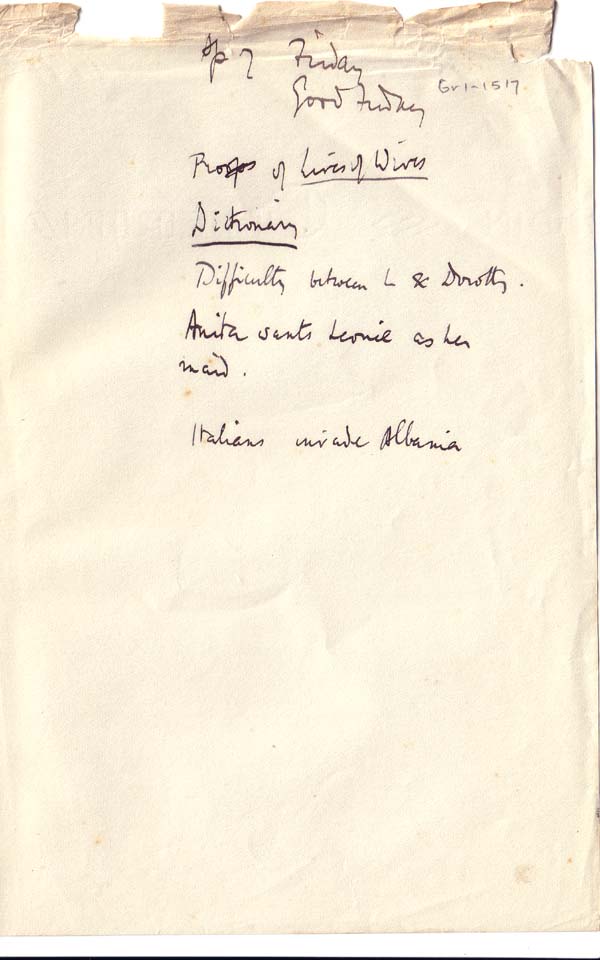 Ap 7 Friday
Good Friday
Gr1-1517
Proofs of Lives of Wives
Dictionary
Difficulty between L & Dorothy.
Anita wants Leonie as her
maid.
Italians invade Albania